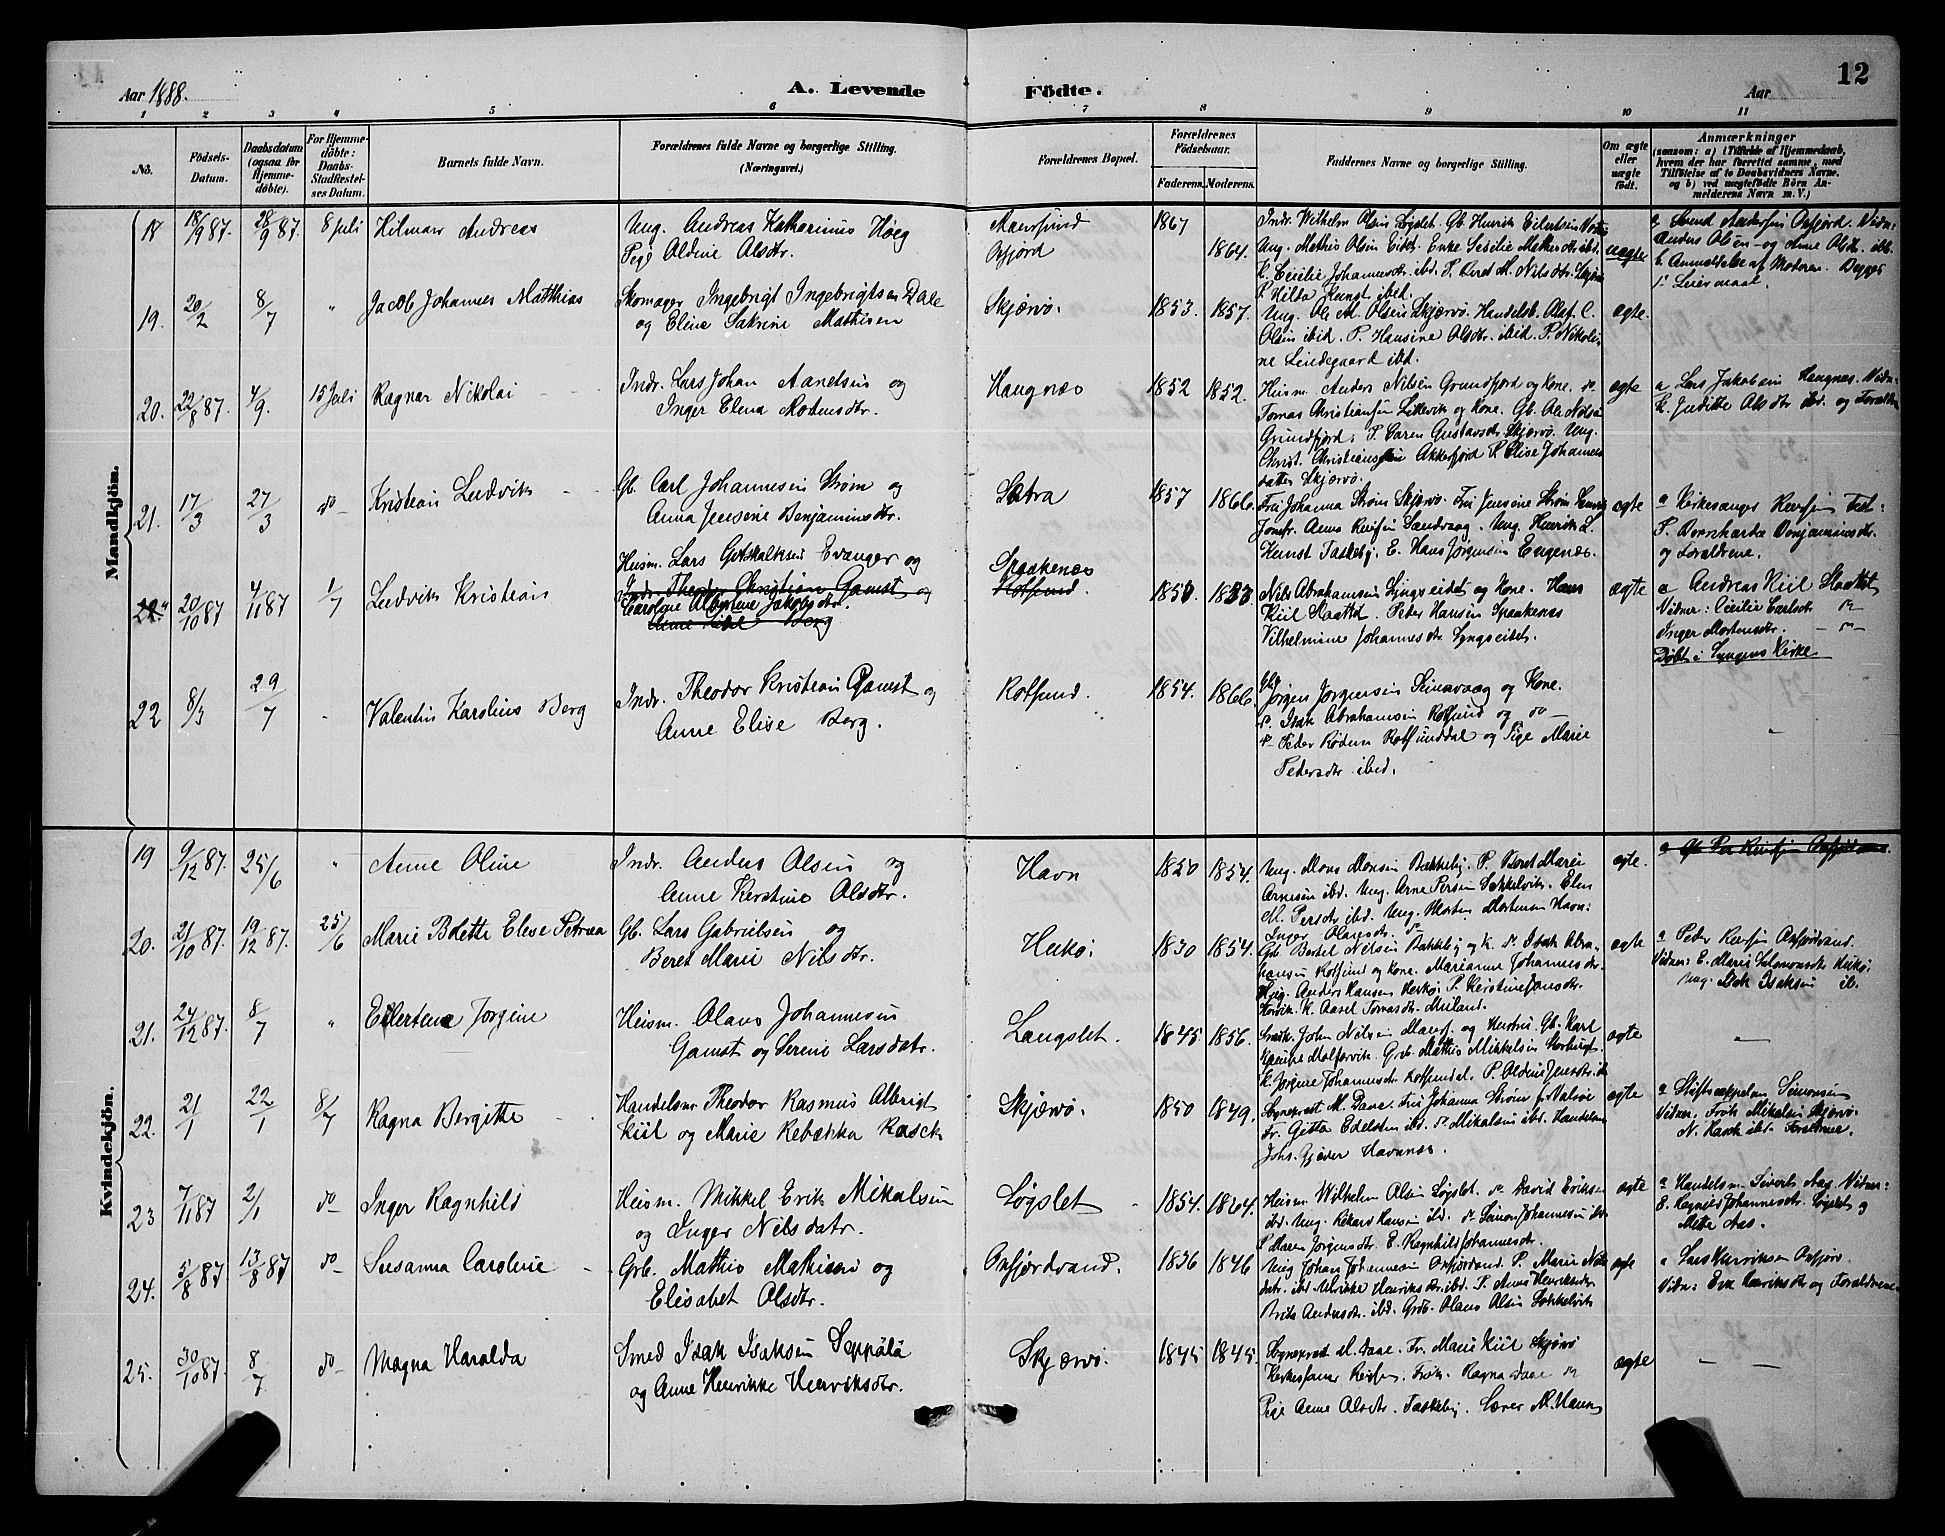 Aar 1888.
A. Levende Födte.
Aar
12
1 2 3 4 5 6 7 8 9 10 11
No.
Födsels-Datum.
Daabsdatum (ogsaa for Hjemme-döbte).
For Hjemme-döbte: Daabs-Stadfæstelses Datum.
Barnets fulde Navn.
Forældrenes fulde Navne og borgerlige Stilling. (Næringsvei.)
Forældrenes Bopæl.
Forældrenes Födselsaar.
Faderens. Moderens.
Faddernes Navne og borgerlige Stilling.
Om ægte eller uægte födt.
Anmærkninger
(saasom: a) i Tilfælde af Hjemmedaab, hvem der har forrettet samme, med Tilföielse af to Daabsvidners Navne, og b) ved uægtefödte Börn Anmelderens Navn m. V.)
Mandkjön.
18 18/9 87. 28/9 87. 8 Juli Hilmar Andreas
Ung. Andreas Katharinus Höeg
Pige Aldine Olsdtr.
Maursund
Oxfjord
1867
1864.
uægte
Ung. Mathis Olsen Eidet. Enke Cecilie Mathisdtr. ibd.
K. Cecilie Johannesdtr. ibd. P. Beret M. Nilsdtr. Skjærvø
P. Hilda Kunst ibid.
Anders Olsen og Anne Olsdtr. ibd.
b. Anmeldelse af Moderen. Begges
1ste Leiermaal.
19. 20/2 8/7 " Jacob Johannes Matthias
Skomager Ingebrigt Ingebrigtsen Dale
og Eline Sakrine Mathisen
Skjærvø. 1853. 1857. ægte.
Ung. Ole M. Olsen Skjærvø. Handelsb. Olaf C.
Olsen ibid. P. Hansine Olsdtr. ibid. P. Nikoline Lindegaard ibd.
20. 22/8 87. 4/9. 15 Juli Ragnar Nikolai
Indr. Lars Johan Aanetsen og
Inger Elena Mortensdtr.
Haugnæs 1852 1852. ægte
Husm. Anders Nilsen Grundfjord og Kone.
Tomas Christiansen Littevik og Kone. Gb. Ole Nilsen
Grundfjord. P. Caren Gustavsdtr. Skjærvø. Ung.
Christ. Christiansen Akkefjord P. Elise Johannesdatter Skjærvø.
a Lars Jakobsen Haugnæs. Vidn:
K. Juditte Olsdtr ibd. og Forældrene
21. 17/3 27/3 do Kristian Ludvik
Gb. Carl Johannesen Strøm og
Anna Jensine Benjaminsdtr.
Sætra 1857 1866. ægte
Fru Johanna Strøm Skjærvø. Fru Jensine Strøm
Jomfr. Anna Sandvaag. Ung. Henrik L.
Kunst Taskeby. E. Hans Jörgensen Engenæs.
a Kirkesanger
P. Bernharda Benjaminsdtr.
og Forældrene.
20/10 87 4/11 87 1/7 Ludvik Kristian
Husm. Lars Gotskalksen Evanger og
Indr. Theodor Christian Gamst og
Caroline Albertine Jakobsdtr.
Spaakenæs
Rotsund.
ægte
Nils Abrahamsen Lyngseidet og Kone. Hans
Kiil Peder Hansen Spaakenæs
Vilhelmine Johannesdtr Lyngseidet.
a Andreas Kiil
Vidner: Cecilie Carlsdtr
Inger Mortensdtr.
Døbt i Lyngens Kirke
22 8/3 29/7 Valentin Karolius Berg
Indr. Theodor Kristian Gamst og
Anne Elise Berg.
Rotsund. 1854. 1866.
Jørgen Jørgensen Simavaag og Kone.
Isak Abrahamsen Rotsund og do
Peder Rotsunddal og Pige Marie
Pedersdtr ibid.
Kvindekjön.
19 9/12 87. 25/6 " Anne Oline
Indr. Anders Olsen og
Anne Kerstine Olsdtr.
Havn 1850 1854. ægte.
Ung. Mons Monsen Bakkeby. P. Beret Marie
Arnesen ibd. Ung. Arne Persen Sekkelvik. Elen
M. Persdtr ibd. Ung. Morten Mortensen Havn:
Inger Olausdtr. do
20. 21/10 87. 19/12 87. 25/6 Marie Bolette Elise Petræa
Gb. Lars Gabrielsen og
Beret Marie Nilsdtr.
Hukø. 1830 1854. ægte
Gb. Bertel Nilsen Bakkeby og K. do Isak Abrahamsen Rotsund og Kone. Marianne Johannesdtr.
Anders Hansen P. Kerstine Jonsdtr.
a Peder Oxfjordvand.
Vidner: E. Maria Salomonsdtr
Ung. Isak Isaksen ib.
21. 24/12 87. 8/7 " Eilertine Jørgine
Husm. Olaus Johannesen
Gamst og Serine Larsdatr.
Langslet. 1845. 1856. ægte
John Nilsen og Hustru. Gb. Karl
Grb. Mathis Mikkelsen
K. Jørgine Johannesdtr Rotsundal. P. Aldine Jensdtr. ib
22. 21/1 22/1 8/7 Ragna Bergitte
Handelsm. Theodor Rasmus Albrigt
Kiil og Marie Rebækka Rasch
Skjærvø. 1850 1849. ægte
Sogneprest M. Daae. Fru Johanna Strøm
Fr. Gitta Edelsten ibd. do Mikalsen ibd. Handelsm
Johs. Gjæver Havnnæs.
a Stiftscappellan Simonsen
Vidner. Frøk. Mikalsen Skjærvø.
N. Rasch ibd. Forældrene.
23 7/11 87 2/1 do Inger Ragnhild
Husm. Mikkel Erik Mikalsen
og Inger Nilsdatr.
Løgslet 1854. 1864. ægte
Husm Wilhelm Olsen Løgslet. do David Eriksen
ibd. Ung. Rikard Hansen ibd. do Simon Johannesen ibd.
P. Maren Jørgensdtr. E. Ragnhild Johannesdtr.
a Handelsm. Sivert Aas Vidner:
E. Ragnild Johannesdtr. Løgslet og
Mette Aas.
24. 5/8 87. 13/8 87 do Susanna Caroline
Grb. Mathis Mathisen og
Elisabet Olsdtr.
Oxfjordvand. 1836 1846 ægte
Ung. Johan Johannesen Oxfjordvand. P. Marie Nilsdatr. ibd. Ulrikke Henriksdtr ibd. P. Anne Henriksdtr.
Brita Andersdtr. ibd. Grb. Olaus Olsen Sekkelvik
a Lars Henriksen Oxfjord
Vidn: Eva Henriksdtr og Forældrene.
25. 30/10 87. 8/7 do Magna Haralda
Smed Isak Isaksen Seppälä
og Anne Henrikke Henriksdtr.
Skjærvø. 1845 1845. ægte
Sogneprest M. Daae. Fr. Marie Kiil Skjærvø
Kirkesanger Frøk. Ragna Daae
Pige Anne Olsdtr. Taskeby. Lærer M. Hansen